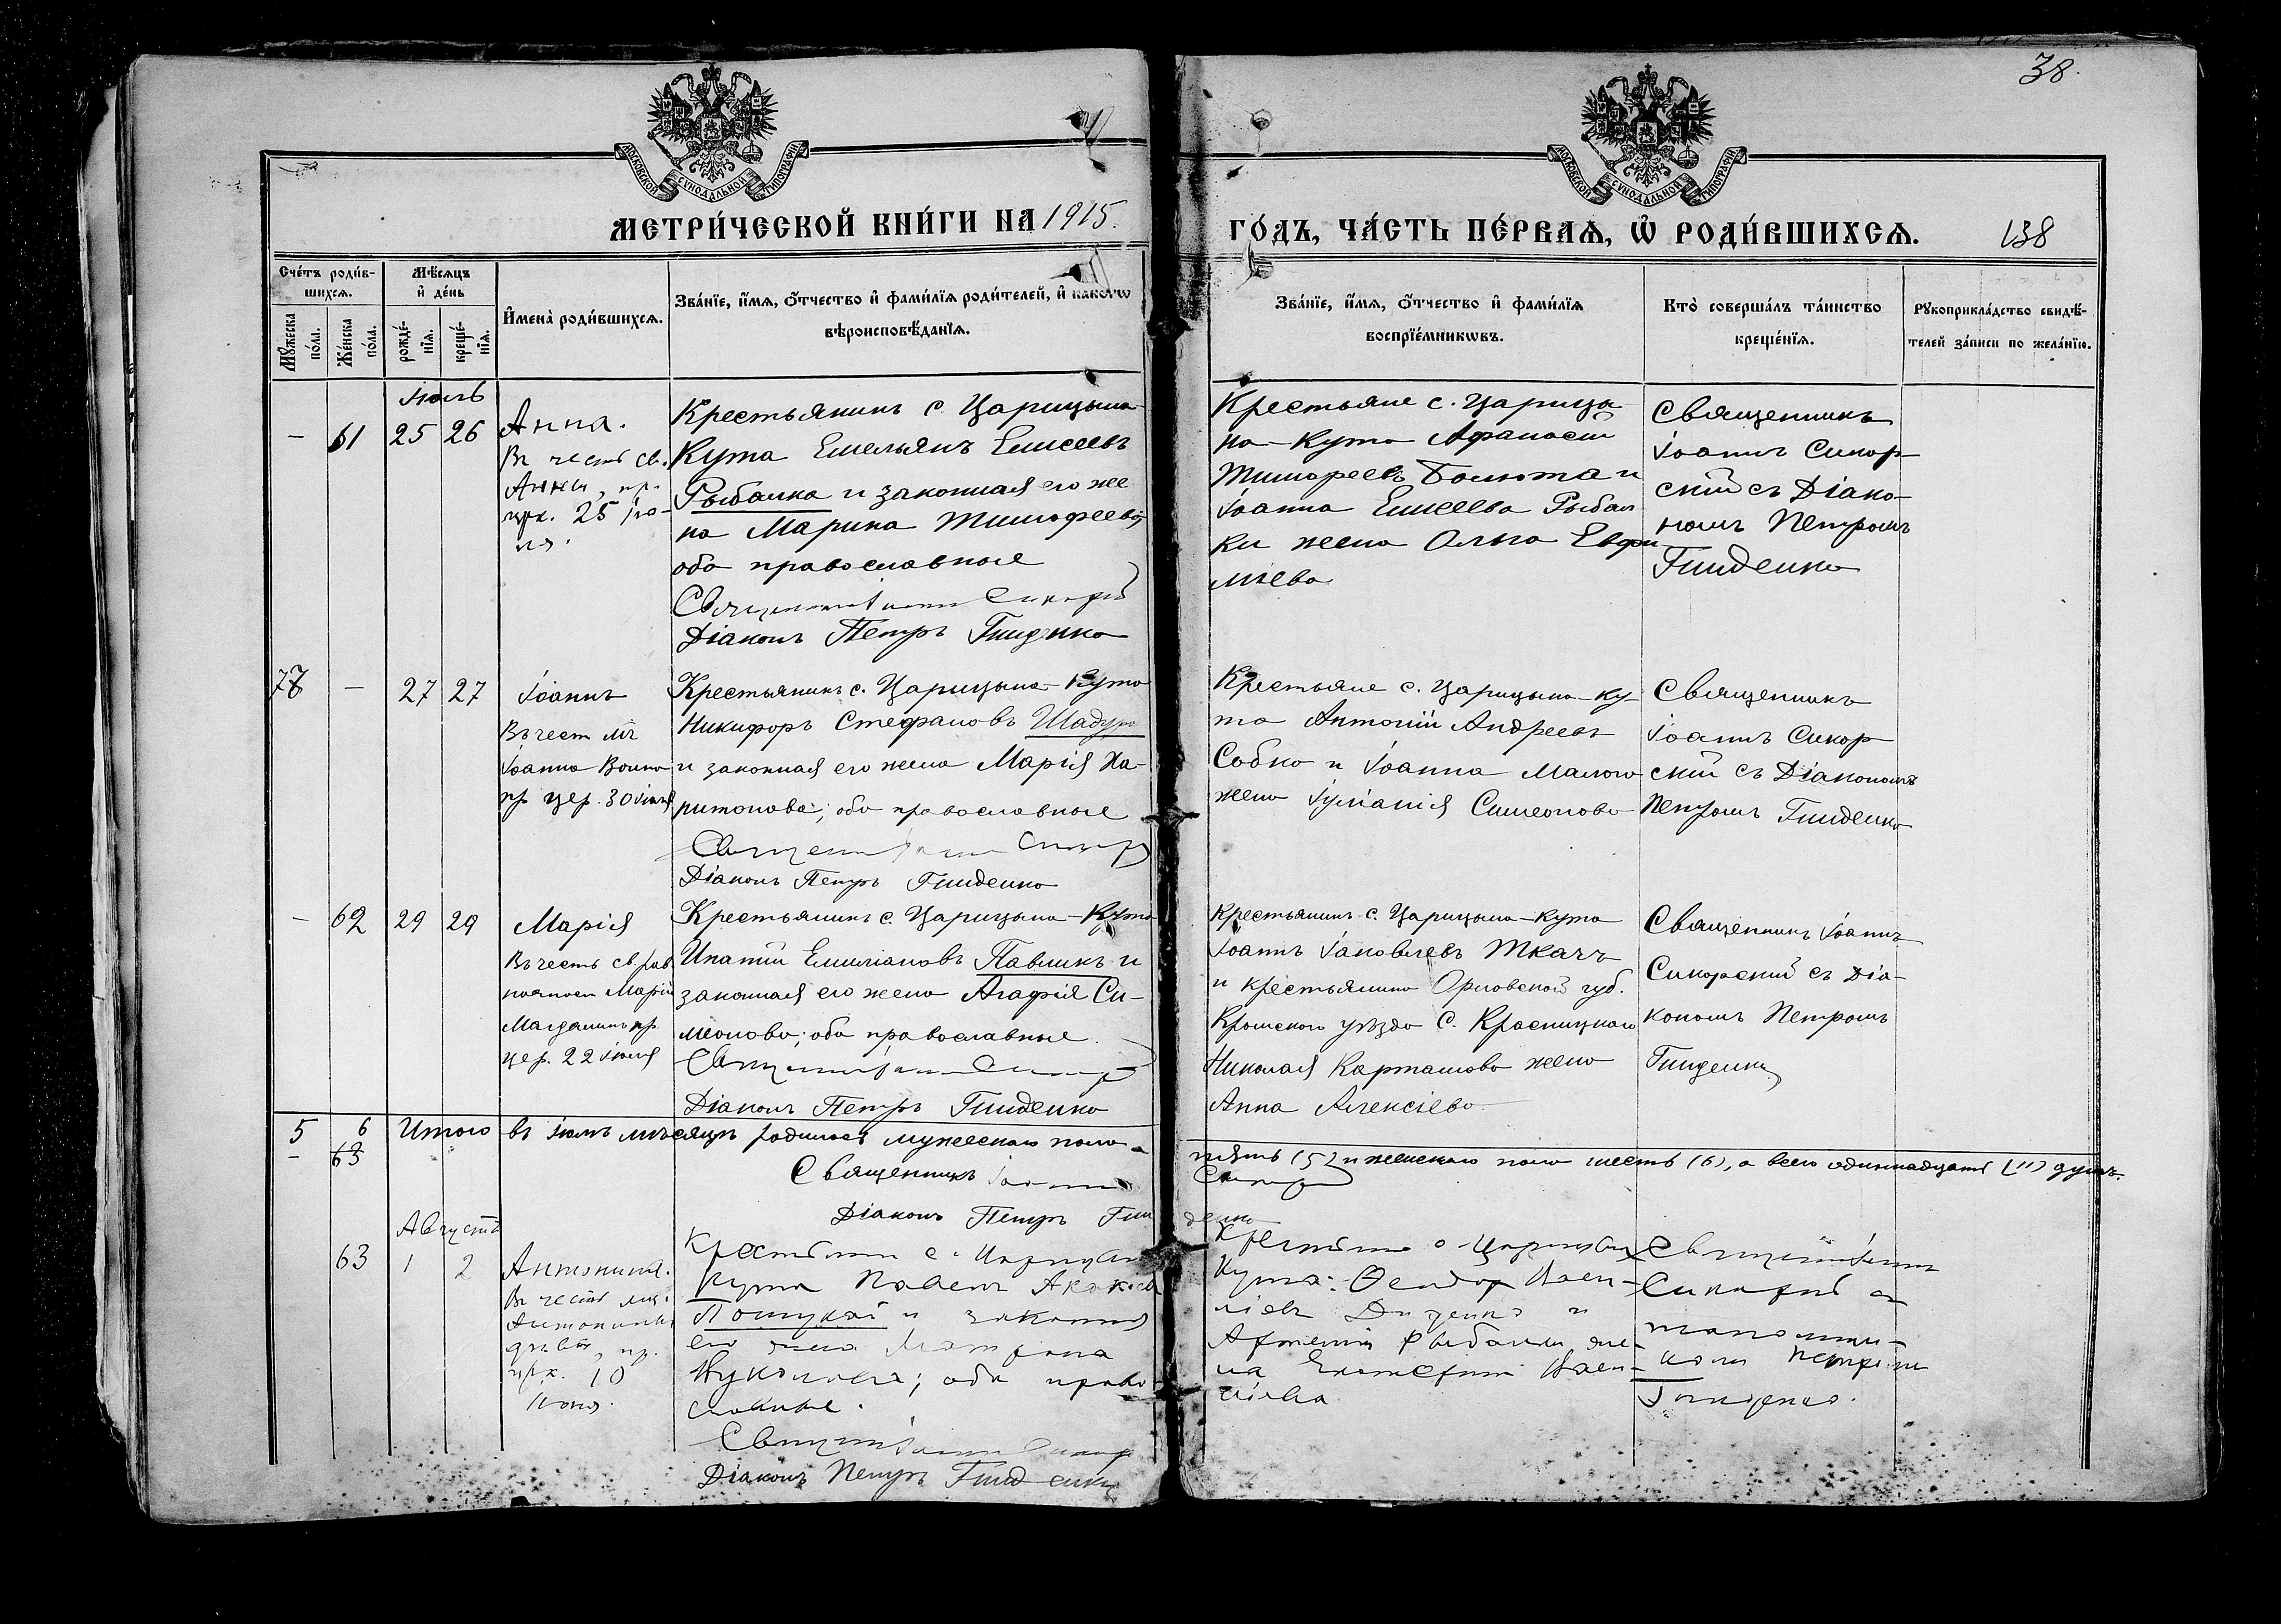 38.
МОСКОВСКОЙ СУНОДАЛЬНОЙ ТИПОГРАФІИ
МОСКОВСКОЙ СУНОДАЛЬНОЙ ТИПОГРАФІИ
МЕТРИ́ЧЕСКОЙ КНИ́ГИ НА 1915.
ГО́ДЪ, ЧА́СТЬ ПЕ́РВАЯ, Ѿ РОДИ́ВШИХСЯ.
138
Сче́тъ роди́в-
шихся.
Мꙋ́жеска
по́ла.
Же́нска
по́ла.
Мѣ́сяцъ
и҆ де́нь
рожде́-
нїя.
креще́-
нїя.
И҆мена̀ роди́вшихся.
Зва́нїе, и҆́мя, ѻ҆́тчество и҆ фами́лїя роди́телей, и҆ какогѡ
вѣроисповѣ́данїя.
Зва́нїе, и҆́мя, ѻ҆́тчество и҆ фами́лїя
воспрїе́мникѡвъ.
Кто̀ соверша́лъ та́инство
креще́нїя.
Рꙋкоприкла́дство свидѣ́-
телей за́писи по жела́нїю.
Іюль
— 61 25 26
Анна.
Въ честь св.
Анны, пр.
црк. 25 ію-
ля.
Крестьянинъ с. Царицына-
Кута Емельянъ Елисеевъ
Рыбалка и законная его же
на Марина Тимофеева,
оба православные
Діаконъ Петръ Гниденко
Крестьяне с. Царицы-
на-Кута Афанасій
Тимофеевъ и
Іоанна Елисеева Рыбал
ки жена Анна Евфи
міева
Священникъ
Іоаннъ Сикор
скій съ Діако-
номъ Петромъ
Гниденко
77 — 27 27
Іоаннъ
Въ честь мч
Іоанна Воина
пр. цер. 30 іюля
Крестьянинъ с. Царицына-Кута
Никифоръ Стефановъ Шадура
и законная его жена Марія Ха-
ритонова; оба православные
Діаконъ Петръ Гниденко
Крестьяне с. Царицына-Ку-
та Антоній Андреевъ
Собко и Іоанна Малого
жена Іуліанія Симеонова
Священникъ
Іоаннъ Сикор
скій съ Діакономъ
Петромъ Гниденко
— 62 29 29
Марія
Въ честь св. рав
ноапост Маріи
Магдалины пр.
цер. 22 іюля
Крестьянинъ с. Царицына-Кута
Ипатій Емиліановъ Павликъ и
законная его жена Агафія Си-
меонова; оба православные.
Діаконъ Петръ Гниденко
Крестьянинъ с. Царицына-Кута
Іоаннъ Іаковлевъ Ткачъ
и крестьянина Орловской губ.
Кромского уѣзда с. Красницкаго
Николая Карташова жена
Анна Алексіева
Священникъ Іоаннъ
Сикорскій съ Діа-
кономъ Петромъ
Гниденко
5 6 Итого въ іюлѣ мѣсяцѣ родилось мужескаго пола
— 63
пять (5) и женскаго пола шесть (6), а всего одиннадцать (11) душъ.
Священникъ Іоаннъ
Сикорскій
Діаконъ Петръ Гни
денко
Августъ
63 1 2
Антонина.
Въ честь мц.
Антонины
дѣвы, пр.
црк. 10
іюня.
Крестьянинъ с. Царицына
Кута Павелъ
и законная
его жена Матрона
оба право
славные.
Діаконъ Петръ Гниденко
Крестьяне с. Царицына
Кута: Ѳеодоръ Васи-
ліевъ и
Рыбалки же-
на Екатерина Васи-
ліева
Священникъ Іоаннъ
Сикорскій съ
Петромъ
Гниденко.